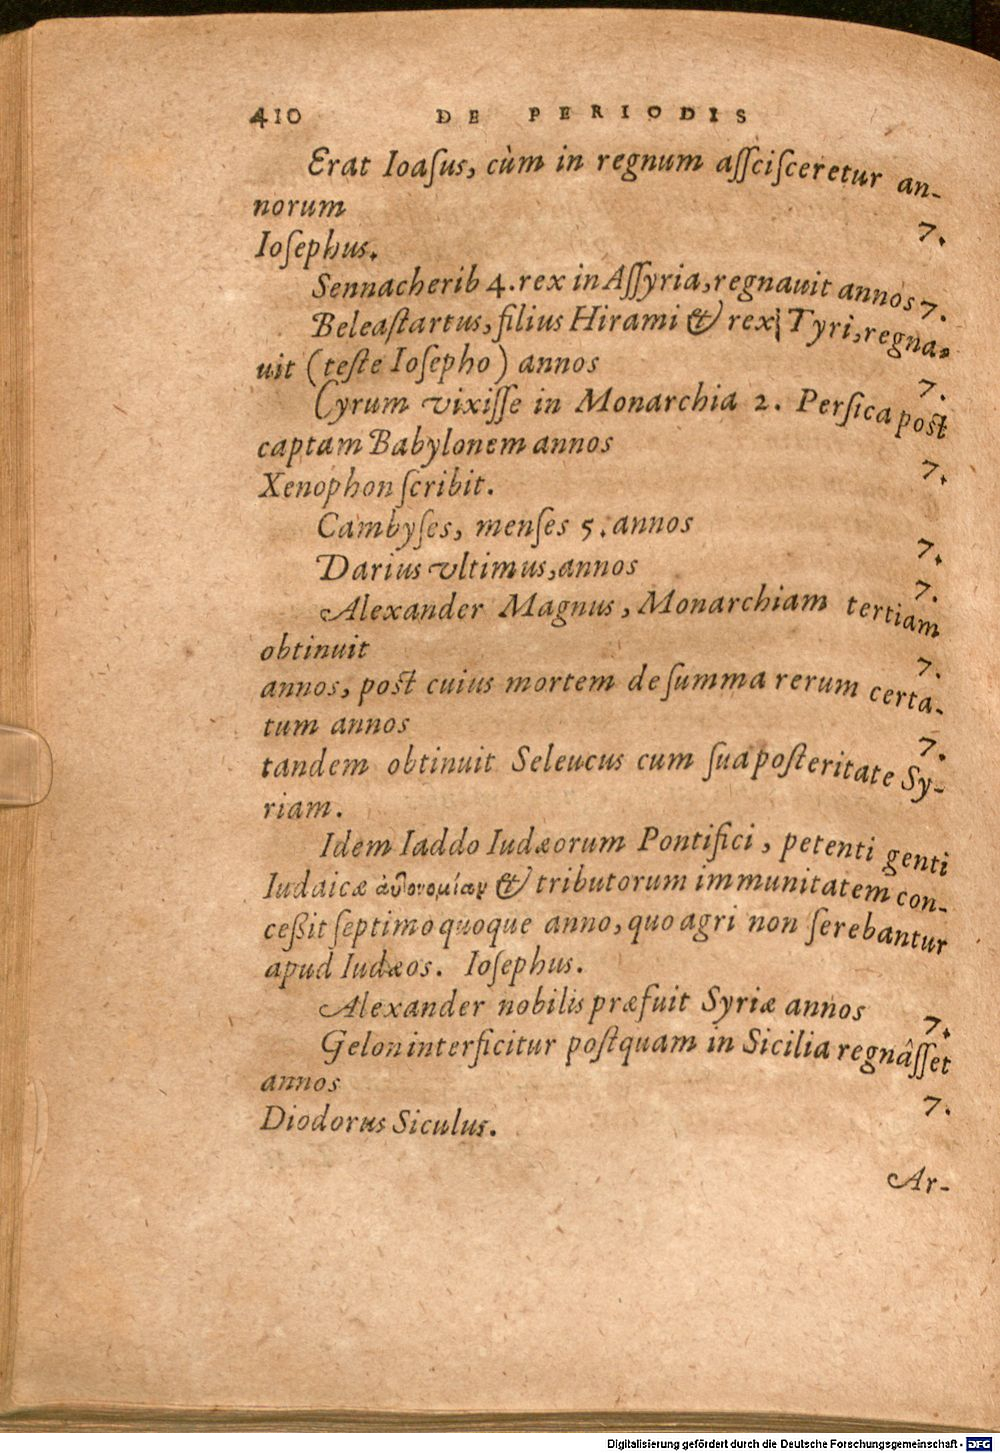 410 DE PERIODIS
Erat Ioaſus, cùm in regnum aſſciſceretur an-
norum 7.
Ioſephus.
Sennacherib 4. rex in Aſſyria, regnauit annos 7.
Beleaſtartus, filius Hirami & rex Tyri, regna-
uit (teſte Ioſepho) annos 7.
Cyrum vixiſſe in Monarchia 2. Perſica poſt
captam Babylonem annos 7.
Xenophon ſcribit.
Cambyſes, menſes 5. annos 7.
Darius vltimus, annos 7.
Alexander Magnus, Monarchiam tertiam
obtinuit 7.
annos, poſt cuius mortem de ſumma rerum certa-
tum annos 7.
tandem obtinuit Seleucus cum ſua poſteritate Sy-
riam.
Idem Iaddo Iudæorum Pontifici, petenti genti
Iudaicæ αὐτονομίαν & tributorum immunitatem con-
ceßit ſeptimo quoque anno, quo agri non ſerebantur
apud Iudæos. Ioſephus.
Alexander nobilis præfuit Syriæ annos 7.
Gelon interficitur poſtquam in Sicilia regnâſſet
annos 7.
Diodorus Siculus.
Ar-
Digitalisierung gefördert durch die Deutsche Forschungsgemeinschaft - DFG